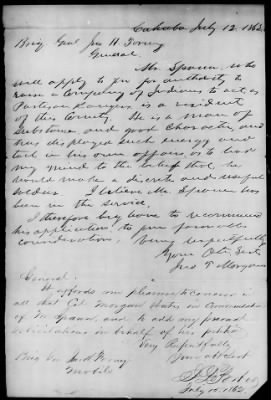 Cahaba July 12, 1862
Brig Genl Jno H Forney
General.
Mr. Spann, who
will apply to you for authority to
raise a Company of Indians to act as
Partisan Rangers is a resident
of this County. He is a man of
substance and good character, and
has displayed such energy and
tact in his own affairs as to lead
my mind to the belief that, he
would make a discreet and useful
soldier. I believe Mr Spann has
been in the service.
I therefore beg leave to recommend
his application to your favorable
consideration. Being respectfully
Your Obt Svt
Jno T Morgan
General.
It affords me pleasure to concur in
all that Col Morgan states in commendation
of Mr Spann, and to add my personal
solicitations in behalf of his petition
Very Respectfully
Your obt Svt
Brig Gen Forney
Mobile
July 12. 1862